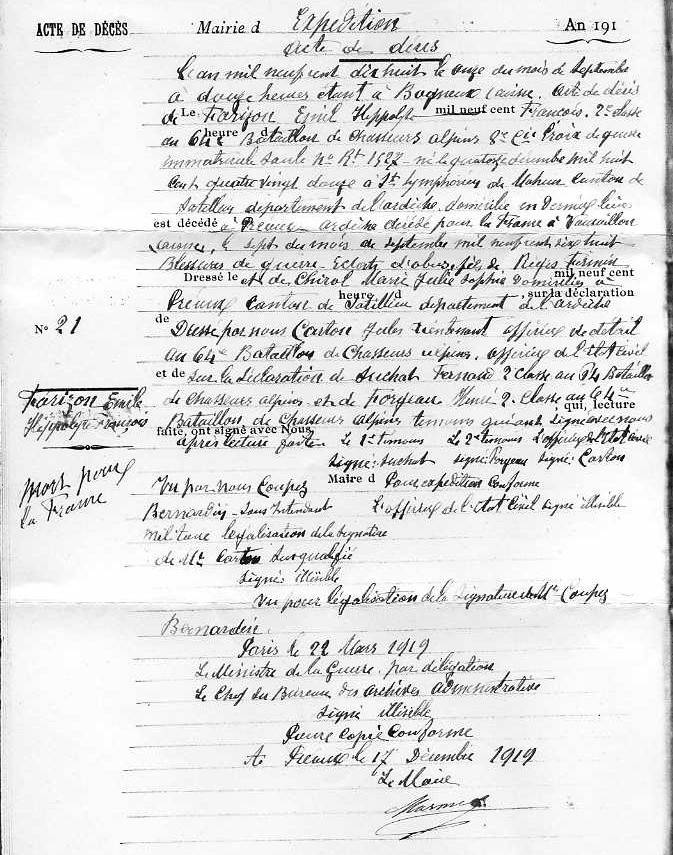 ACTE DE DÉCÈS
Mairie d Expedition
An 191
acte de décès
L'an mil neuf cent dix huit le onze du mois de Septembre
à douze heures étant à Bagneux (aisne. acte de décès
de Le Farizon Emil Hippolyte mil neuf cent François. 2e classe
au 64e heure d Bataillon de Chasseurs alpins 8e Cie Croix de guerre
Immatricule Saule No Rt 1527 né le quatorze décembre mil huit
cent quatre vingt douze à St Symphorien de Mahun Canton de
Satillieu departement de l'ardèche domicilié en dernier lieu
est décédé à Preaux ardèche décédé pour la France à Vauxaillon
(aisne, le sept du mois de septembre mil neuf cent dix huit
Blessures de guerre Eclats d'obus, fils de Regis Firmin
Dressé le et de Chirol Marie Julie Sophie domiciliés à mil neuf cent
Preaux Canton de heure d Satillieu departement de l'ardèche , sur la déclaration
No 21
de Dressé par nous Carton Jules Lieutenant officier de détail
au 64e Bataillon de Chasseurs alpins, officier de l'Etat Civil
et de Sur la déclaration de Suchat Fernand 2e Classe au 64 Bataillon
Farizon Emile
Hippolyte François
de Chasseurs alpins et de Porgeau 2e Classe au 64e
Bataillon de Chasseurs alpins temoins qui ont signé avec nous qui, lecture
faite, ont signé avec Nous après lecture faite. Le 1er temoins Le 2e temoins L'officier de l'Etat Civil
Signé: Suchat signé: Porgeau signé: Carton
mort pour
la France
Maire d Pour expedition Conforme
Vu par nous Coupez
Bernardin Sous Intendant L'officier de l'Etat Civil signé illisible
militaire legalisation de la signature
de Mr Carton Sus qualifié
Signé illisible
Vu pour legalisation de la Signature de Mr Coupez
Bernardin.
Paris le 22 Mars 1919
Le Ministre de la Guerre, par délégation
Le Chef du Bureaux des archives administrative
Signé illisible
Pour copie Conforme
A Preaux le 17 Décembre 1919
Le Maire